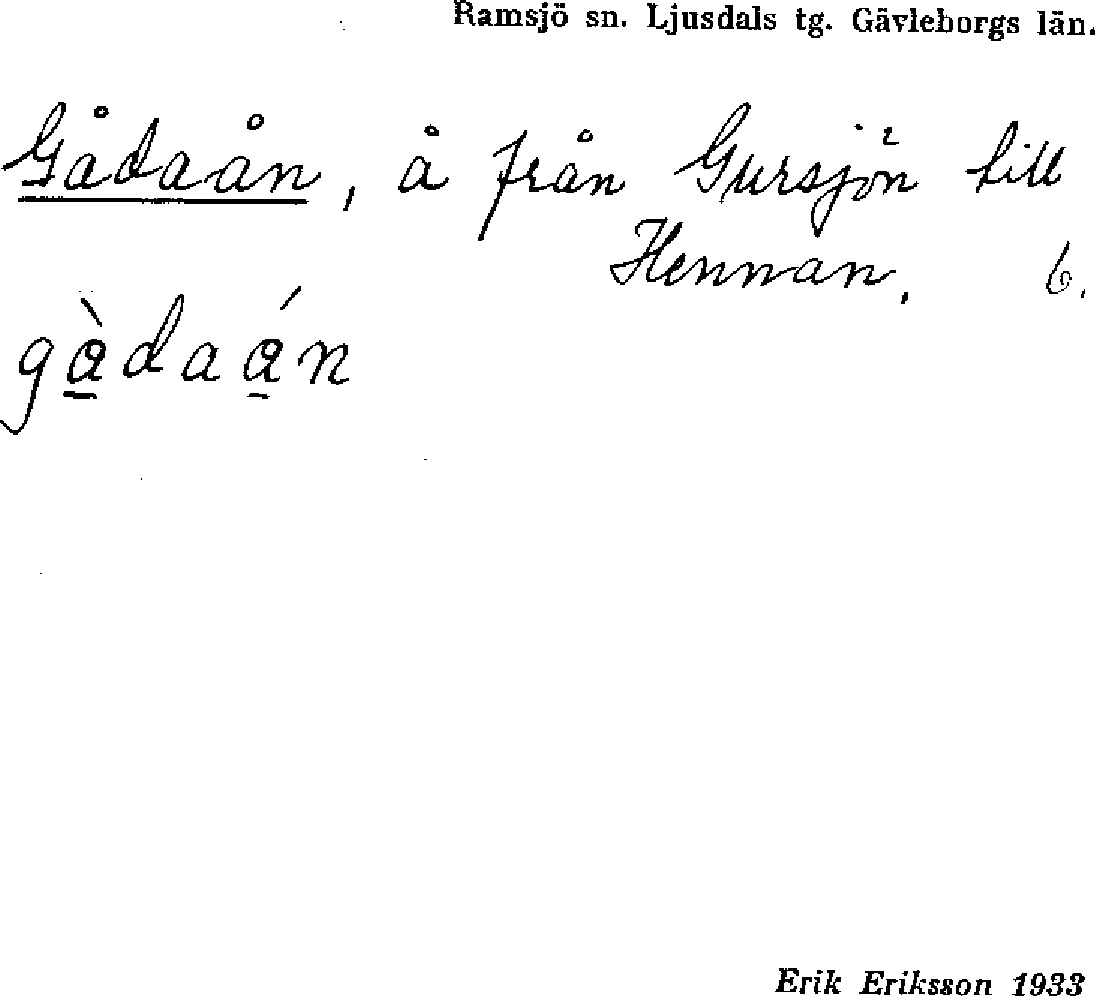 Ramsjö sn. Ljusdals tg. Gävleborgs län.
Gådaån, å från Gursjön till
Hennan. 6.
gå̠̀daǻ̠n
Erik Eriksson 1933